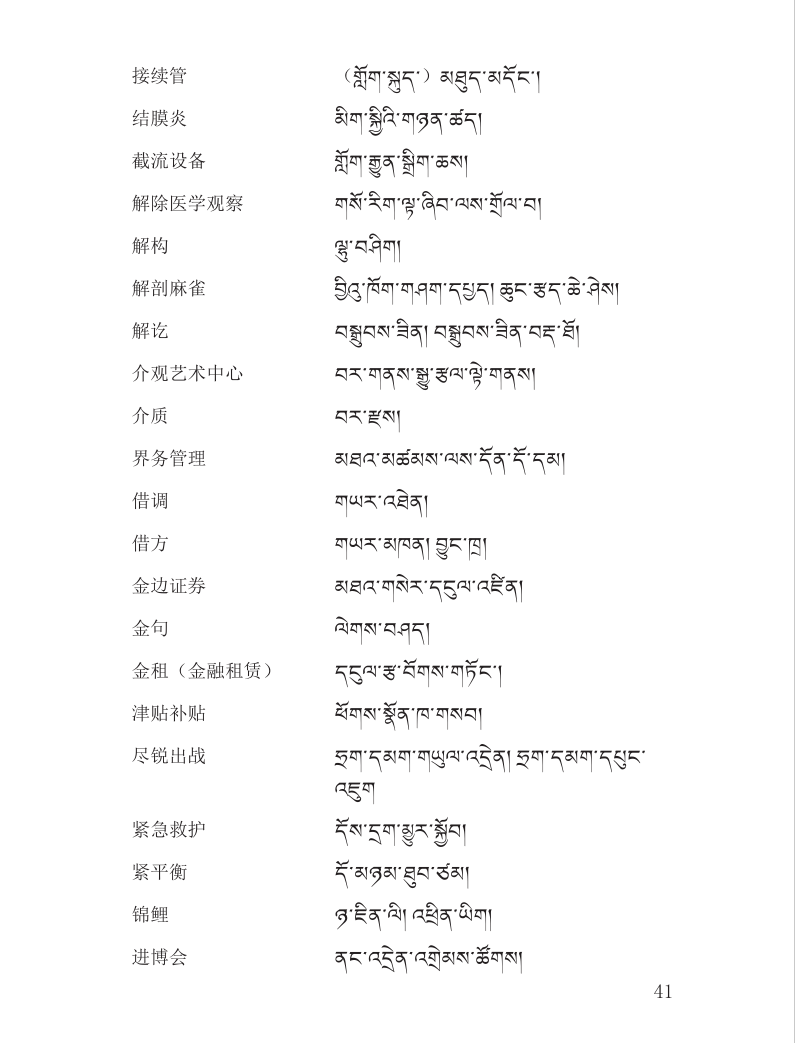 接续管 （གློག་སྐུད་）མཐུད་མདོང་།
结膜炎 མིག་སྐྱིའི་གཉན་ཚད།
截流设备 གློག་རྒྱུན་སྒྲིག་ཆས།
解除医学观察 གསོ་རིག་ལྟ་ཞིབ་ལས་གྲོལ་བ།
解构 ལྷུ་བཤིག།
解剖麻雀 བྱིའུ་ཁོག་གཤག་དཔྱད། ཆུང་རྩད་ཆེ་ཤེས།
解讫 བསྒྲུབས་ཟིན། བསྒྲུབས་ཟིན་བརྡ་ཐོ།
介观艺术中心 བར་གནས་སྒྱུ་རྩལ་ལྟེ་གནས།
介质 བར་རྫས།
界务管理 མཐའ་མཚམས་ལས་དོན་དོ་དམ།
借调 གཡར་འཐེན།
借方 གཡར་མཁན། བྱུང་ཁྲ།
金边证券 མཐའ་གསེར་དངུལ་འཛིན།
金句 ལེགས་བཤད།
金租（金融租赁） དངུལ་རྩ་བོགས་གཏོང་།
津贴补贴 ཕོགས་སྣོན་ཁ་གསབ།
尽锐出战 ཧྲག་དམག་གཡུལ་འདྲེན། ཧྲག་དམག་དཔུང་
འཇུག
紧急救护 དོས་དྲག་མྱུར་སྐྱོབ།
紧平衡 དོ་མཉམ་ཐུབ་ཙམ།
锦鲤 ཉ་ཇིན་ལི། འཕྲིན་ཡིག།
进博会 ནང་འདྲེན་འགྲེམས་ཚོགས།
41